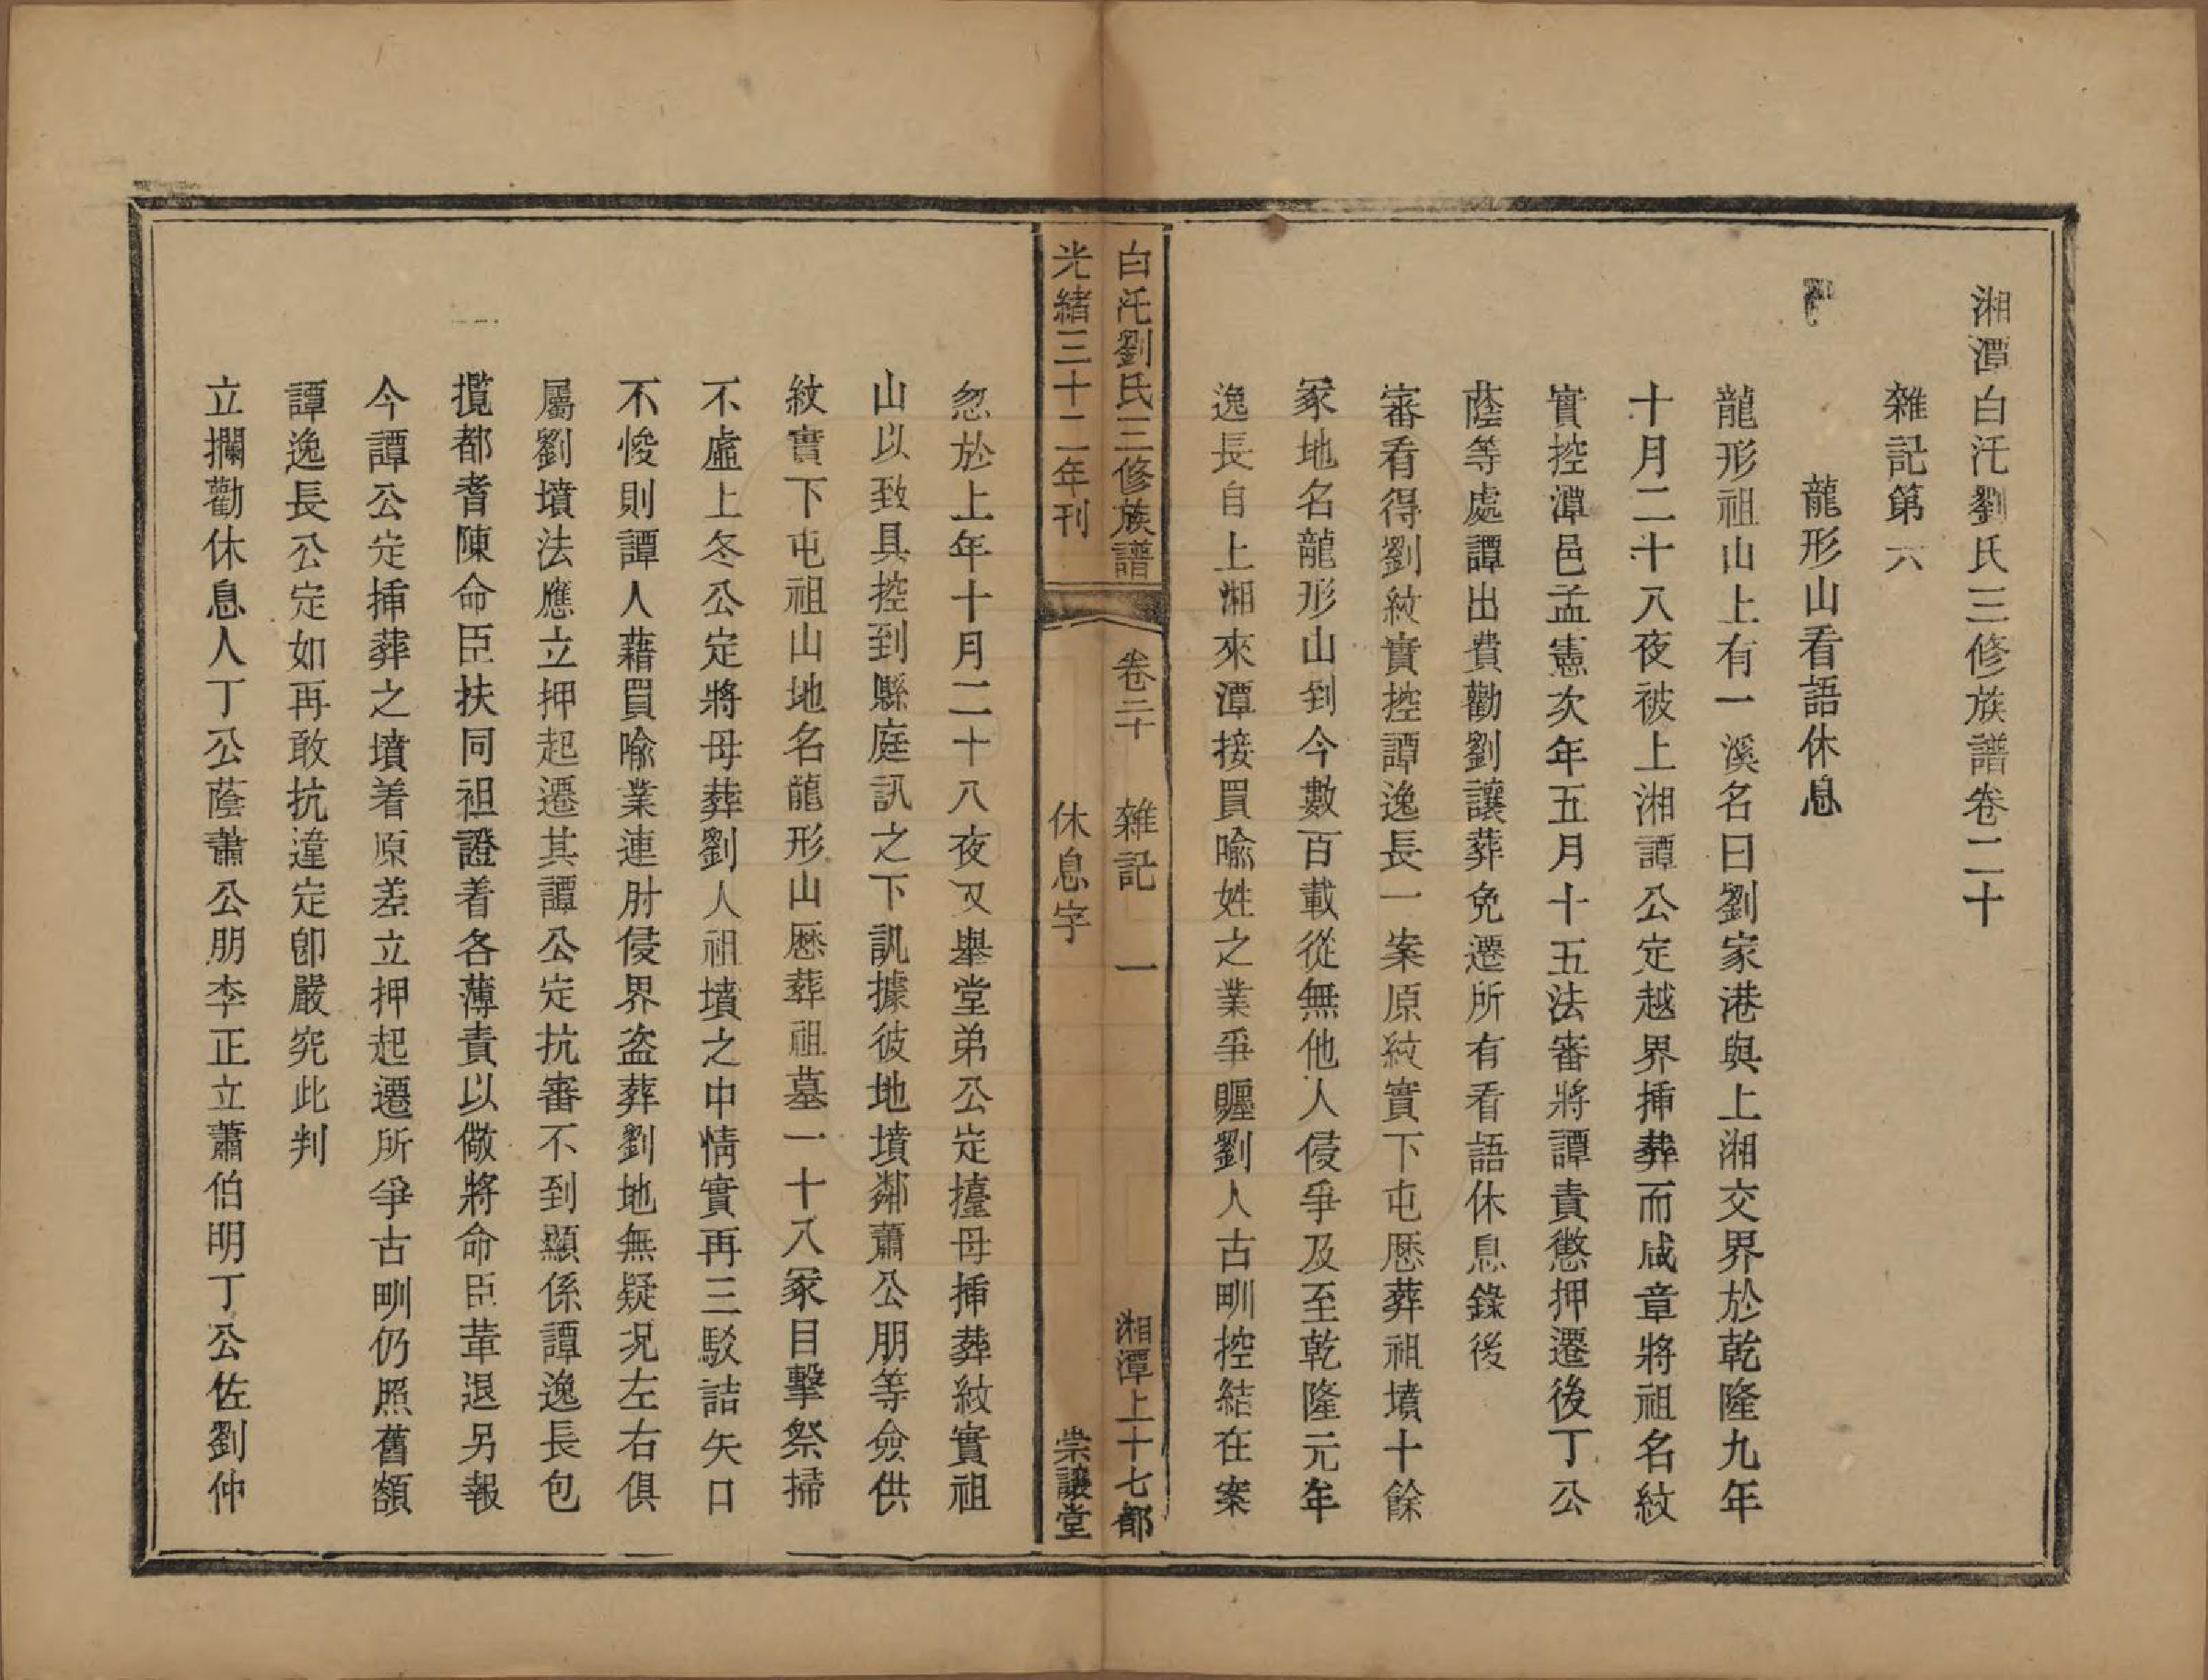 湘潭白汑劉氏三修族譜卷二十
雜記第六
龍形山看語休息
龍形祖山上有一溪名曰劉家港與上湘交界於乾隆九年
十月二十八夜被上湘譚公定越界揷葬而咸章將祖名紋
實控潭邑孟憲次年五月十五法審將譚責懲押遷後丁公
蔭等處譚出費勸劉讓葬免遷所有看語休息錄後
審看得劉紋實控譚逸長一案原紋實下屯歷葬祖墳十餘
冢地名龍形山到今數百載從無他人侵爭及至乾隆元年
逸長自上湘來潭接買喻姓之業爭躔劉人古甽控結在案
白汑劉氏三修族譜 卷二十 雜記 一 湘潭上十七都
光緒三十二年刊 休息字 崇讓堂
忽於上年十月二十八夜又舉堂弟公定擡母揷葬紋實祖
山以致具控到縣庭訊之下訊據彼地墳鄰蕭公朋等僉供
紋實下屯祖山地名龍形山歷葬祖墓一十八冢目擊祭掃
不虛上冬公定將母葬劉人祖墳之中情實再三駁詰矢口
不悛則譚人藉買喻業連肘侵界盜葬劉地無疑况左右俱
屬劉墳法應立押起遷其譚公定抗審不到顯係譚逸長包
攬都耆陳命臣扶同袒證着各薄責以儆將命臣革退另報
今譚公定揷葬之墳着原差立押起遷所爭古甽仍照舊額
譚逸長公定如再敢抗違定卽嚴究此判
立攔勸休息人丁公蔭蕭公朋李正立蕭伯明丁公佐劉仲